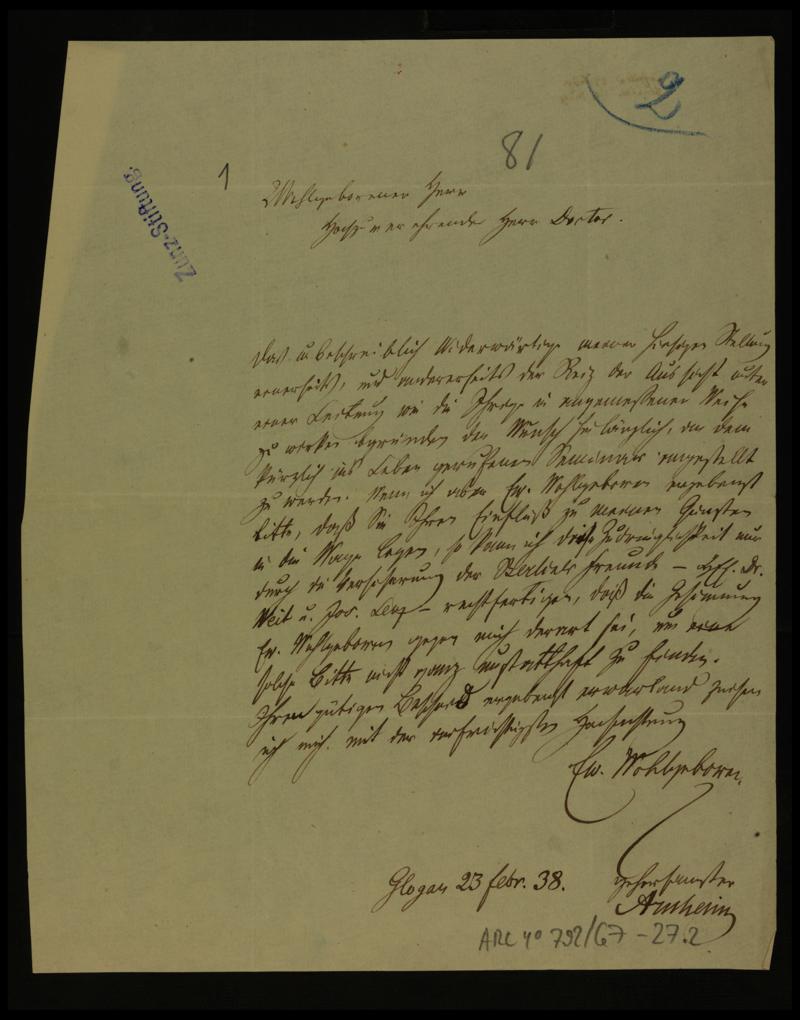 2
81
1
Zunz-Stiftung.
Wohlgeborener Herr
Hochzuverehrender Herr Doctor.
Das unbeschreiblich Widerwärtige meiner hiesigen Stellung
einerseits, und andererseits der Reiz der Aussicht unter
einer Leitung wie die Ihrige in angemessener Weise
zu wirken begründen den Wunsch hinlänglich, an dem
kürzlich ins Leben gerufenen Seminar angestellt
zu werden. Wenn ich aber Ew. Wohlgeboren ergebenst
bitte, daß Sie Ihren Einfluß zu meinen Gunsten
in die Wage legen, so kann ich diese Zudringlichkeit nur
durch die Versicherung der Berliner Freunde – HH. Dr.
Veit u. Jos. – rechtfertigen, daß die Gesinnung
Ew. Wohlgeboren gegen mich derart sei, um eine
solche Bitte nicht ganz unstatthaft zu finden.
Ihren gütigen Bescheid ergebenst erwartend zeichne
ich mich mit der aufrichtigsten Hochachtung
Ew. Wohlgeboren
gehorsamster
Glogau 23 Febr. 38.
Arnheim
ARC 4° 792/G7-27.2